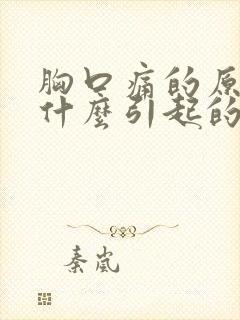 胸口痛的原
什麼引起的
秦嵐